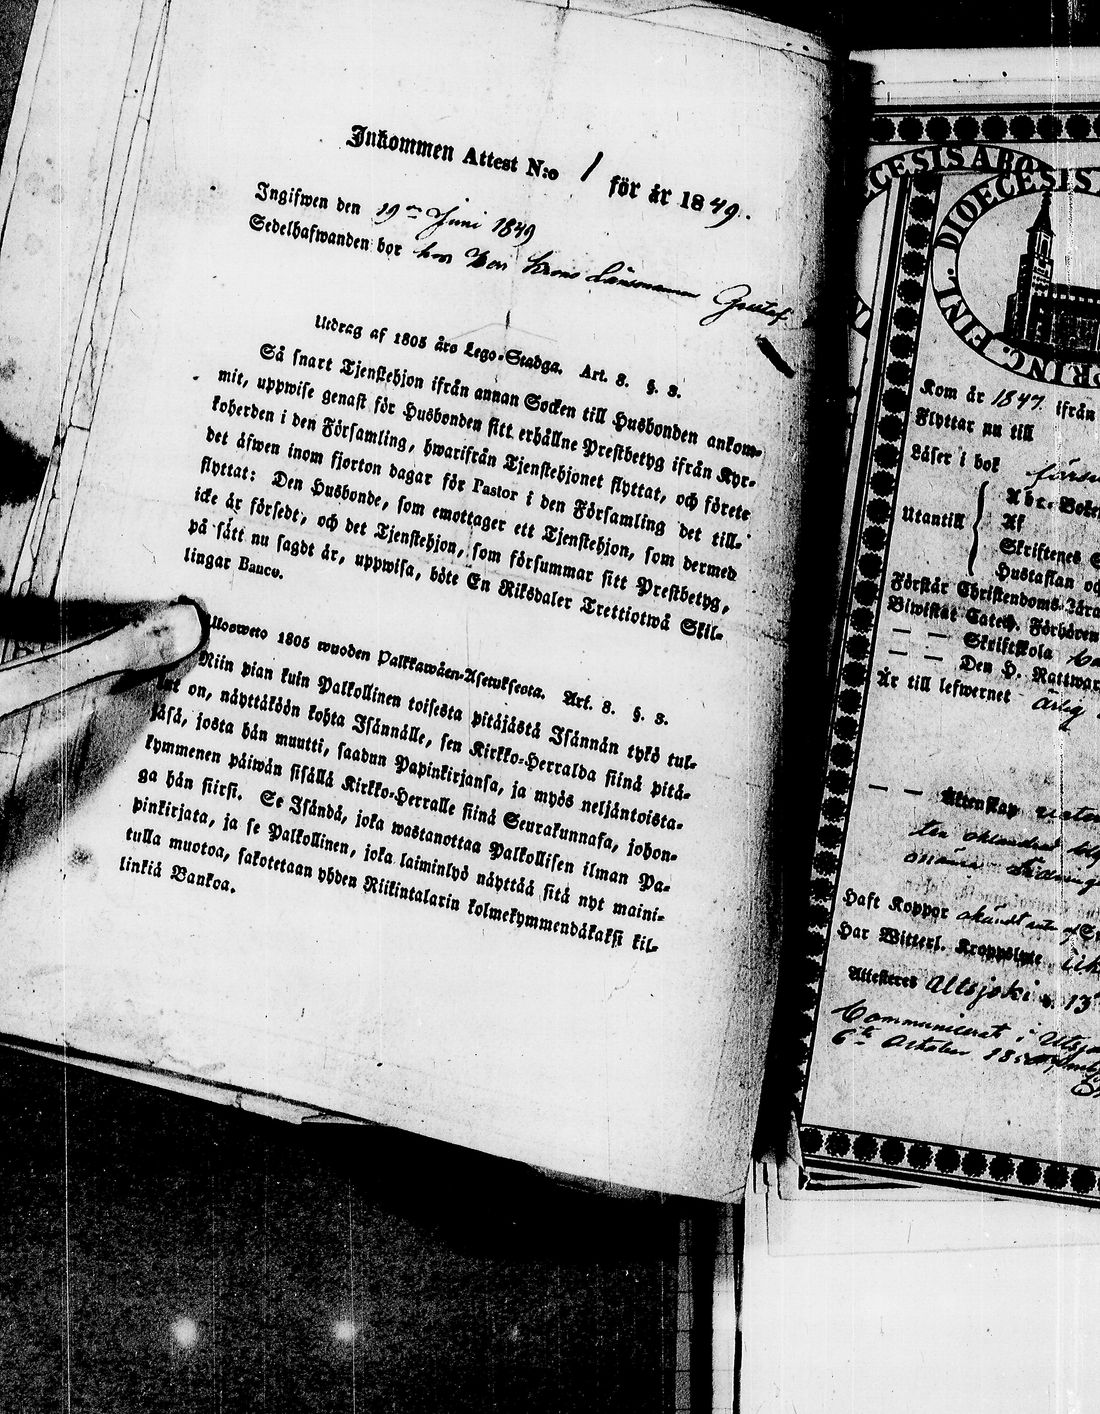 Inkommen Attest N:o 1 för år 1849.
Ingifwen den 19de Juni 1849
Sedelhafwanden bor hos Krono Länsmannen Gustaf
Utdrag af 1805 års Lego-Stadga. Art. 8. §. 3.
Så snart Tjenstehjon ifrån annan Socken till Husbonden ankom-
mit, uppwise genast för Husbonden sitt erhållne Prestbetyg ifrån Kyr-
koherden i den Församling, hwarifrån Tjenstehjonet flyttat, och förete
det äfwen inom fjorton dagar för Pastor i den Församling det till-
flyttat: Den Husbonde, som emottager ett Tjenstehjon, som dermed
icke är försedt, och det Tjenstehjon, som försummar sitt Prestbetyg,
på sätt nu sagdt är, uppwisa, böte En Riksdaler Trettiotwå Skil-
lingar Banco.
Ulosweto 1805 wuoden Palkkawäen-Asetuksesta. Art. 8. §. 3.
Niin pian kuin Palkollinen toisesta pitäjästä Isännän tykö tul-
lut on, näyttäköön kohta Isännälle, sen Kirkko-Herralda siinä pitä-
jäsä, josta hän muutti, saadun Papinkirjansa, ja myös neljäntoista-
kymmenen päiwän sisällä Kirkko-Herralle siinä Seurakunnasa, johon-
ga hän siirsi. Se Isändä, joka wastanottaa Palkollisen ilman Pa-
pinkirjata, ja se Palkollinen, joka laiminlyö näyttää sitä nyt maini-
tulla muotoa, sakotetaan yhden Riikintalarin kolmekymmendäkaksi kil-
linkiä Bankoa.
ECESIS ABO
DIOECESIS
PRINC. FINL.
Kom år 1847 ifrån
Flyttar nu till
Läser i bok
Utantill
Abc-Boken
Af
Skriftenes
Hustaflan oc
Förstår Christendoms-Lära
Biwistat Catech. Förhören
— — Skriftskola
— — Den H. Nattwar
Är till lefwernet ärlig
— — Äktenskap
Haft Koppor okändt
Har Witterl. Kroppslyte
Attesteres Utsjoki d. 13
Communicerat i Utsjo
6te October 18